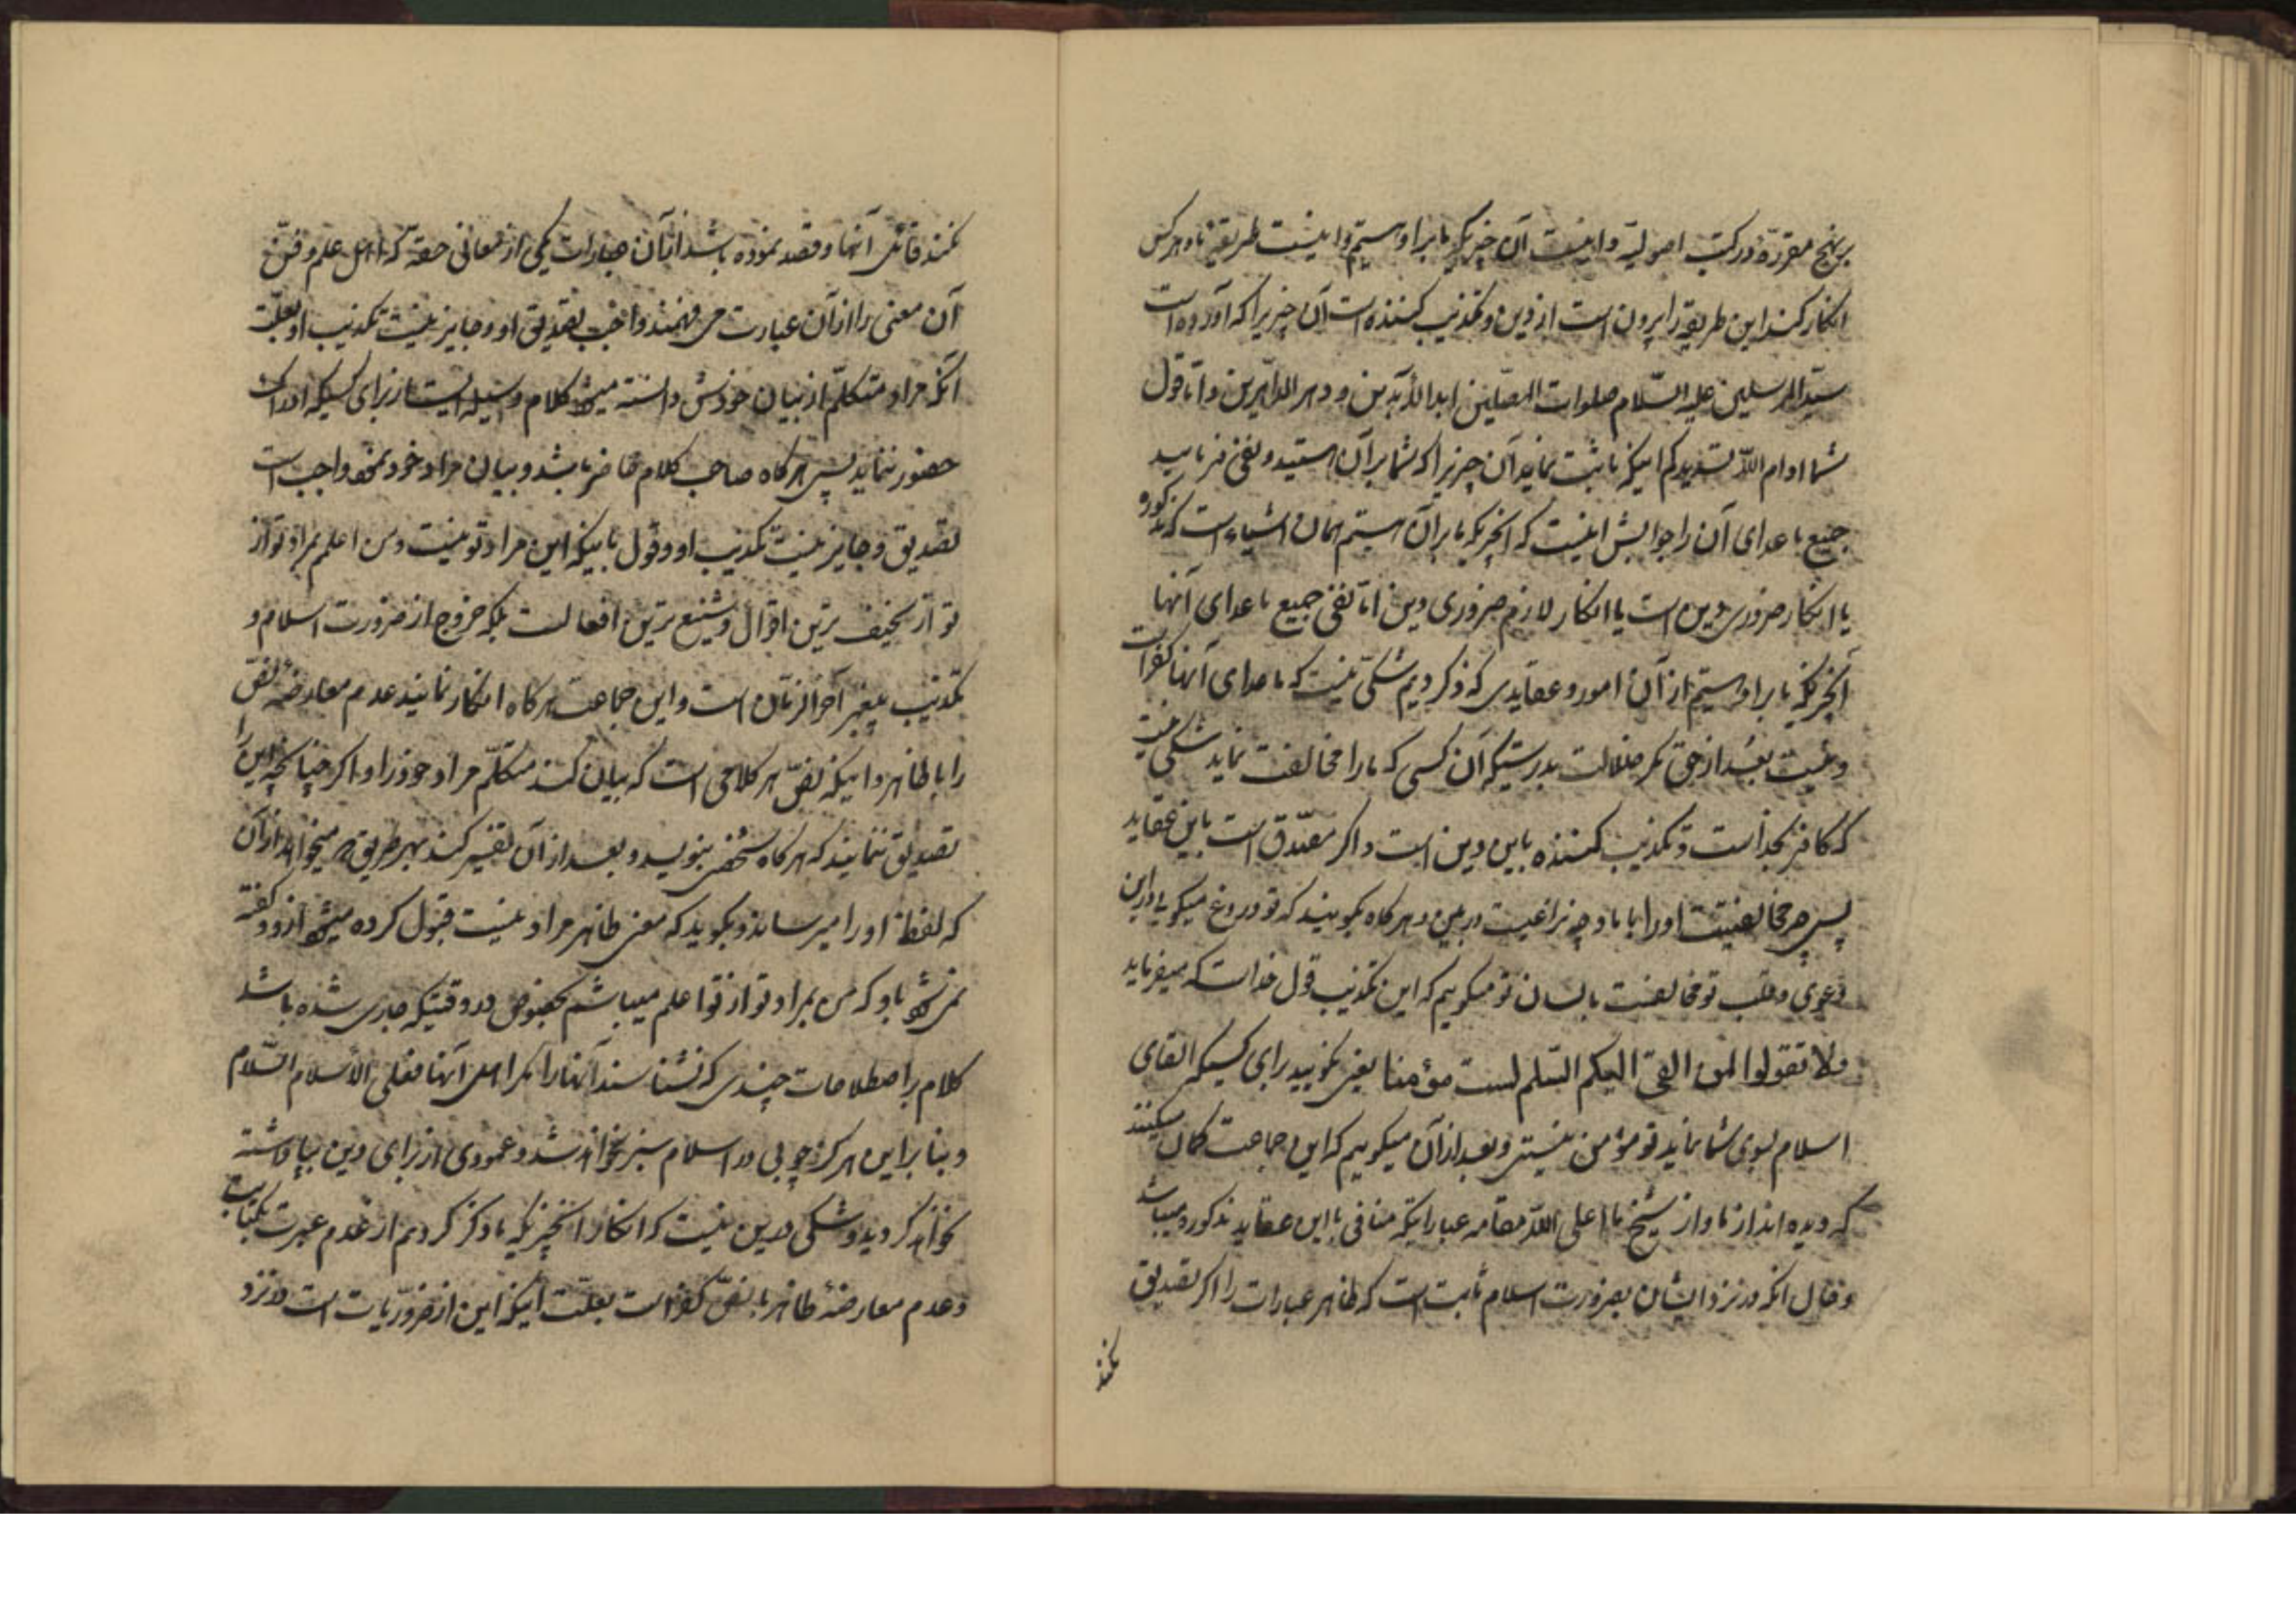 بر نهج مقرره در کتب اصولیه و اینست آن چیزیکه ما بر او هستیم و اینست طریقه ما و هر کس
انکار کند این طریقه را بیرون است از دین و تکذیب کننده است آن چیزیرا که آورده است
سید المرسلین علیه السلام صلوات المصلین ابد الآبدین و دهر الداهرین و اما قول
شما ادام الله تسدیدکم اینکه ما ثبت نماید آن چیزیرا که شما بر آن هستید و نفی فرمایید
جمیع ما عدای آن را جوابش اینست که آنچیزیکه ما بر آن هستیم همان اشیاء است که مذکوره
یا انکار ضروری دین است یا انکار لازم ضروری دین اما نفی جمیع ما عدای آنها
آنچیزیکه ما بر او هستیم از آن امور و عقایدی که ذکر کردیم شکی نیست که ما عدای آنها کفر است
و نیست بعد از حق مگر ضلالت بدرستیکه آن کسی که ما را مخالفت نماید شکی نیست
که کافر بخداست و تکذیب کننده باین دین است و اگر مصدق است باین عقاید
پس چه مخالفتیست او را با ما و چه نزاعیست در بین و هرگاه بگویند که تو دروغ میگویی در این
دعوی و قلب تو مخالفست با لسان تو میگویم که این تکذیب قول خداست که میفرماید
ولا تقولوا لمن القی الیکم السلم لست مؤمنا یعنی نگویید برای کسیکه القای
اسلام بسوی شما نماید تو مؤمن نیستی و بعد از آن میگوییم که این جماعت گمان میکنند
که دیده اند از ما و از شیخ ما اعلی الله مقامه عباراتیکه منافی با این عقاید مذکوره میباشد
و حال آنکه در نزد ایشان بضرورت اسلام ثابت است که ظاهر عبارات را اگر تصدیق
نکند
نکند قائل آنها و قصد نموده باشد از آن عبارات یکی از معانی حقه که اهل علم و فن
آن معنی را از آن عبارت می فهمند واجب تصدیق او و جایز نیست تکذیب او بعلت
آنکه مراد متکلم از بیان خودش دانسته میشود کلام وسیله ایست از برای کسیکه ادراک
حضور ننماید پس هرگاه صاحب کلام حاضر باشد و بیان مراد خود بکند واجب است
تصدیق و جایز نیست تکذیب او و قول باینکه این مراد تو نیست و من اعلم بمراد تو از
تو از سخیف ترین اقوال و شنیع ترین افعالست بلکه خروج از ضرورت اسلام و
تکذیب پیغمبر آخر الزمان است و این جماعت هرگاه انکار نمایند عدم معارضه نص
را با ظاهر و اینکه نص هر کلامی است که بیان کند متکلم مراد خود را و اگر چنانچه این را
تصدیق ننمایند که هرگاه شخصی بنویسد و بعد از آن تفسیر کند بهر طریق که میخواهد از آن
که لفظ او را میرساند و بگوید که معنی ظاهر مراد نیست قبول کرده میشود از او و گفته
نمیشود باو که من بمراد تو از تو اعلم میباشم بخصوص در وقتیکه جاری شده باشد
کلام بر اصطلاحات چندی که نشناسند آنها را مگر اهل آنها فعلی الاسلام السلام
و بنا بر این هرگز چوبی در اسلام سبز نخواهد شد و عمودی از برای دین بپا داشته
نخواهد گردید و شکی در این نیست که انکار آنچیزیکه ما ذکر کردیم از عدم عبرت بکتاب
و عدم معارضه ظاهر با نص کفر است بعلت اینکه این از ضروریات است در نزد